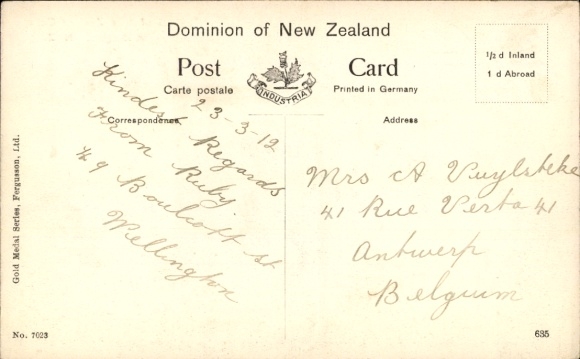 Dominion of New Zealand
Post Card
Carte postale
Printed in Germany
INDUSTRIA
1/2 d Inland
1 d Abroad
Correspondence
Address
23-3-12
Kindest Regards
From Ruby
49 Boulcott St
Wellington
Mrs A Vuylsteke
41 Rue Verta 41
Antwerp
Belguim
Gold Medal Series, Fergusson, Ltd.
No. 7023
635